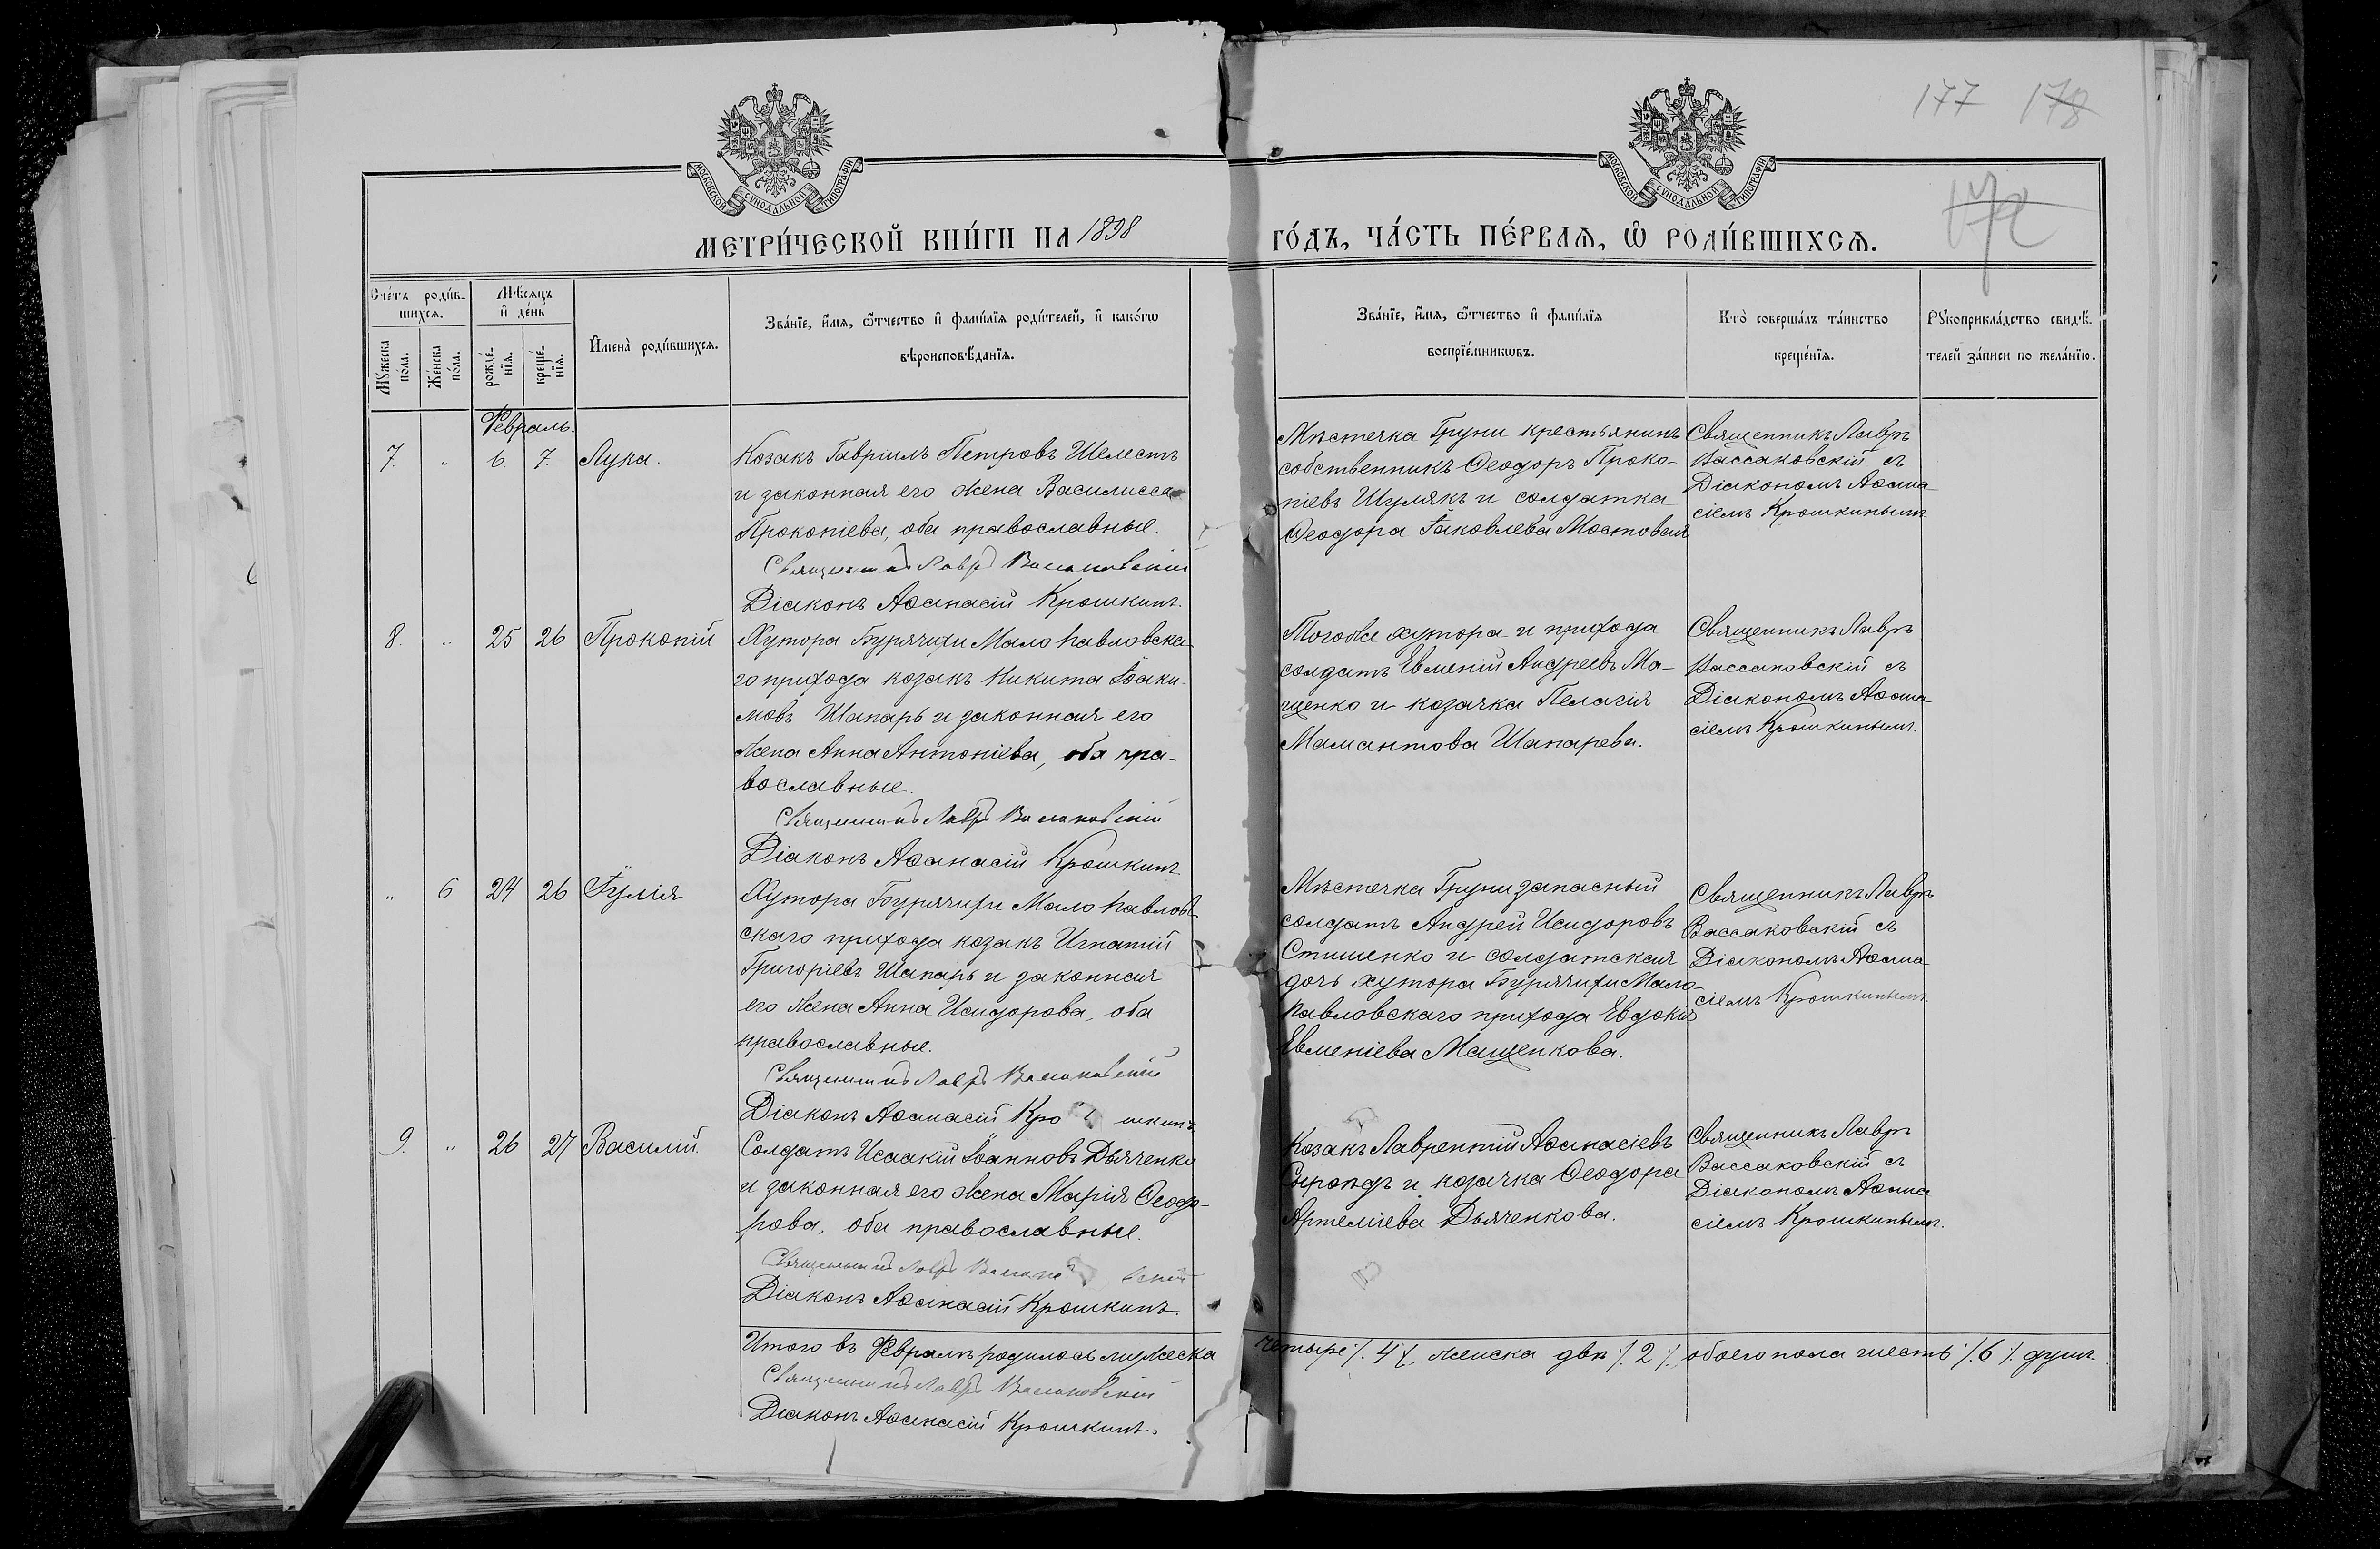 177 178
172
МОСКОВСКОЙ СѴНОДАЛЬНОЙ ТИПОГРАФІИ
МОСКОВСКОЙ СѴНОДАЛЬНОЙ ТИПОГРАФІИ
МЕТРИ́ЧЕСКОЙ КНИ́ГИ НА 1898
ГО́ДЪ, ЧА́СТЬ ПЕ́РВАѦ, Ѽ РОДИ́ВШИХСѦ.
Сче́тъ роди́в-
шихсѧ.
Мꙋжеска по́ла.
Же́нска по́ла.
Мѣ́сѧцъ и҆ де́нь
рожде́-
нїѧ.
креще́-
нїѧ.
И҆мена̀ роди́вшихсѧ.
Зва́нїе, и҆́мѧ, ѻ҆́тчество и҆ фами́лїѧ роди́телей, и҆ како́гѡ
вѣроисповѣ́данїѧ.
Зва́нїе, и҆́мѧ, ѻ҆́тчество и҆ фами́лїѧ
воспрїе́мникѡвъ.
Кто̀ соверша́лъ та́инство
креще́нїѧ.
Рꙋкоприкла́дство свидѣ́-
телей за́писи по жела́нїю.
Февраль.
7. „ 6. 7. Лука.
Козакъ Гавріилъ Петровъ Шелестъ
и законная его жена Василисса
Прокопіева, оба православные.
Священникъ Лавръ Вассаковскій
Діаконъ Аѳанасій Крошкинъ.
Мѣстечка Груни крестьянинъ
собственникъ Ѳеодоръ Проко-
піевъ Шулякъ и солдатка
Ѳеодора Іаковлева Мостовая
Священникъ Лавръ
Вассаковскій съ
Діакономъ Аѳана-
сіемъ Крошкинымъ.
8. „ 25 26 Прокопій
Хутора Бурячихи Мало Павловска-
го прихода козакъ Никита Іоаки-
мовъ Шапарь и законная его
жена Анна Антоніева, оба пра-
вославные.
Священникъ Лавръ Вассаковскій
Діаконъ Аѳанасій Крошкинъ
Тогоже хутора и прихода
солдатъ Евменій Андреевъ Ма-
щенко и козачка Пелагія
Мамантова Шапарева.
Священникъ Лавръ
Вассаковскій съ
Діакономъ Аѳана-
сіемъ Крошкинымъ.
„ 6 24 26 Іулія
Хутора Бурячихи Мало Павлов-
скаго прихода козакъ Игнатій
Григоріевъ Шапарь и законная
его жена Анна Исидорова, оба
православные.
Священникъ Лавръ Вассаковскій
Діаконъ Аѳанасій Крошкинъ
Мѣстечка Груни запасный
солдатъ Андрей Исидоровъ
Стишенко и солдатская
дочь хутора Бурячихи Мало-
Павловскаго прихода Евдокія
Евменіева Мащенкова.
Священникъ Лавръ
Вассаковскій съ
Діакономъ Аѳана-
сіемъ Крошкинымъ.
9. „ 26 27 Василій.
Солдатъ Исаакій Іоанновъ Дьяченко
и законная его жена Марія Ѳеодо-
рова, оба православные.
Священникъ Лавръ Вассаковскій
Діаконъ Аѳанасій Крошкинъ.
Козакъ Лаврентій Аѳанасіевъ
и козачка Ѳеодора
Артеміева Дьяченкова.
Священникъ Лавръ
Вассаковскій съ
Діакономъ Аѳана
сіемъ Крошкинымъ.
Итого въ Февралѣ родилось мужеска четыре /. 4 /., женска двѣ /. 2 /., обоего пола шесть /. 6 /. душъ
Священникъ Лавръ Вассаковскій
Діаконъ Аѳанасій Крошкинъ.